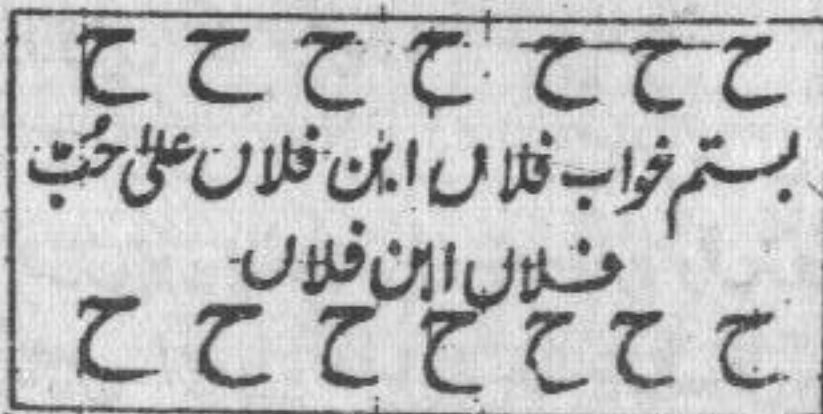 ح ح ح ح ح ح ح
بستم خواب فلاں ابن فلاں علیٰ حُبّ
فلاں ابن فلاں
ح ح ح ح ح ح ح